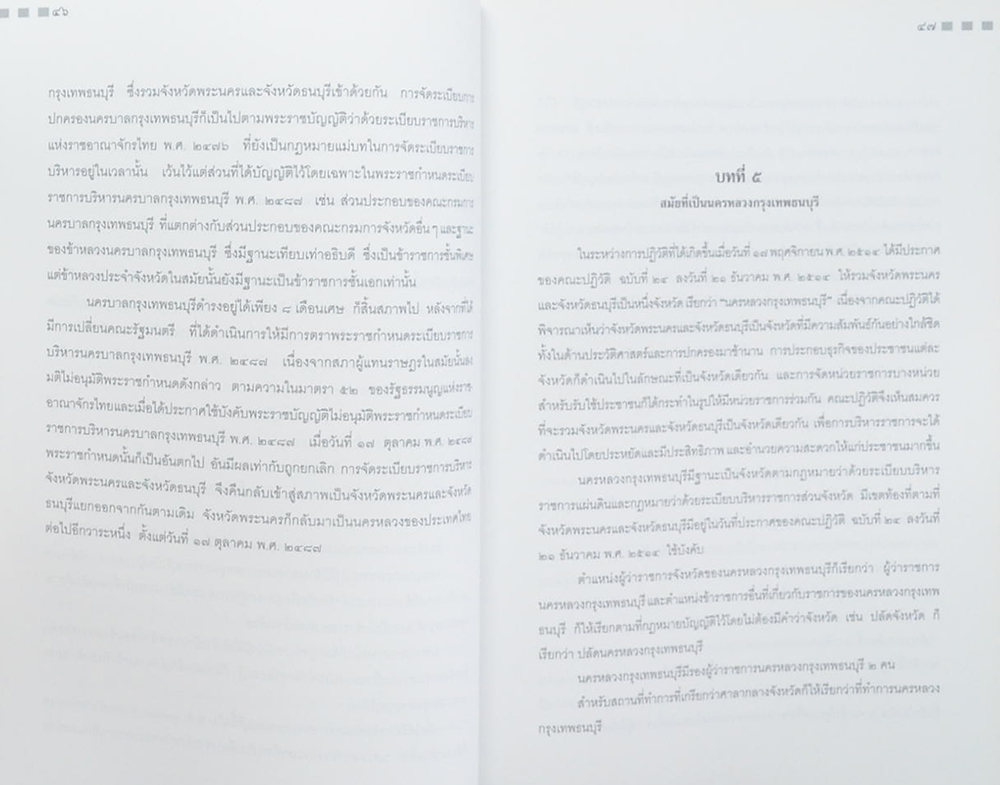 ๔๖
กรุงเทพธนบุรี ซึ่งรวมจังหวัดพระนครและจังหวัดธนบุรีเข้าด้วยกัน การจัดระเบียบการ
ปกครองนครบาลกรุงเทพธนบุรีก็เป็นไปตามพระราชบัญญัติว่าด้วยระเบียบราชการบริหาร
แห่งราชอาณาจักรไทย พ.ศ. ๒๔๗๖ ที่ยังเป็นกฎหมายแม่บทในการจัดระเบียบราชการ
บริหารอยู่ในเวลานั้น เว้นไว้แต่ส่วนที่ได้บัญญัติไว้โดยเฉพาะในพระราชกำหนดระเบียบ
ราชการบริหารนครบาลกรุงเทพธนบุรี พ.ศ. ๒๔๘๗ เช่น ส่วนประกอบของคณะกรมการ
นครบาลกรุงเทพธนบุรี ที่แตกต่างกับส่วนประกอบของคณะกรมการจังหวัดอื่น ๆ และฐานะ
ของข้าหลวงนครบาลกรุงเทพธนบุรี ซึ่งมีฐานะเทียบเท่าอธิบดี ซึ่งเป็นข้าราชการชั้นพิเศษ
แต่ข้าหลวงประจำจังหวัดในสมัยนั้นยังมีฐานะเป็นข้าราชการชั้นเอกเท่านั้น
นครบาลกรุงเทพธนบุรีดำรงอยู่ได้เพียง ๘ เดือนเศษ ก็สิ้นสภาพไป หลังจากที่ได้
มีการเปลี่ยนคณะรัฐมนตรี ที่ได้ดำเนินการให้มีการตราพระราชกำหนดระเบียบราชการ
บริหารนครบาลกรุงเทพธนบุรี พ.ศ. ๒๔๘๗ เนื่องจากสภาผู้แทนราษฎรในสมัยนั้นลง
มติไม่อนุมัติพระราชกำหนดดังกล่าว ตามความในมาตรา ๕๒ ของรัฐธรรมนูญแห่งราช
อาณาจักรไทยและเมื่อได้ประกาศใช้บังคับพระราชบัญญัติไม่อนุมัติพระราชกำหนดระเบียบ
ราชการบริหารนครบาลกรุงเทพธนบุรี พ.ศ. ๒๔๘๗ เมื่อวันที่ ๑๗ ตุลาคม พ.ศ. ๒๔๘๗
พระราชกำหนดนั้นก็เป็นอันตกไป อันมีผลเท่ากับถูกยกเลิก การจัดระเบียบราชการบริหาร
จังหวัดพระนครและจังหวัดธนบุรี จึงคืนกลับเข้าสู่สภาพเป็นจังหวัดพระนครและจังหวัด
ธนบุรีแยกออกจากกันตามเดิม จังหวัดพระนครก็กลับมาเป็นนครหลวงของประเทศไทย
ต่อไปอีกวาระหนึ่ง ตั้งแต่วันที่ ๑๗ ตุลาคม พ.ศ. ๒๔๘๗
๔๗
บทที่ ๕
สมัยที่เป็นนครหลวงกรุงเทพธนบุรี
ในระหว่างการปฏิวัติที่ได้เกิดขึ้นเมื่อวันที่ ๑๗ พฤศจิกายน พ.ศ. ๒๕๑๔ ได้มีประกาศ
ของคณะปฏิวัติ ฉบับที่ ๒๔ ลงวันที่ ๒๑ ธันวาคม พ.ศ. ๒๕๑๔ ให้รวมจังหวัดพระนคร
และจังหวัดธนบุรีเป็นหนึ่งจังหวัด เรียกว่า "นครหลวงกรุงเทพธนบุรี" เนื่องจากคณะปฏิวัติได้
พิจารณาเห็นว่าจังหวัดพระนครและจังหวัดธนบุรีเป็นจังหวัดที่มีความสัมพันธ์กันอย่างใกล้ชิด
ทั้งในด้านประวัติศาสตร์และการปกครองมาช้านาน การประกอบธุรกิจของประชาชนแต่ละ
จังหวัดก็ดำเนินไปในลักษณะที่เป็นจังหวัดเดียวกัน และการจัดหน่วยราชการบางหน่วย
สำหรับรับใช้ประชาชนก็ได้กระทำในรูปให้มีหน่วยราชการร่วมกัน คณะปฏิวัติจึงเห็นสมควร
ที่จะรวมจังหวัดพระนครและจังหวัดธนบุรีเป็นจังหวัดเดียวกัน เพื่อการบริหารราชการจะได้
ดำเนินไปโดยประหยัดและมีประสิทธิภาพ และอำนวยความสะดวกให้แก่ประชาชนมากขึ้น
นครหลวงกรุงเทพธนบุรีมีฐานะเป็นจังหวัดตามกฎหมายว่าด้วยระเบียบบริหาร
ราชการแผ่นดินและกฎหมายว่าด้วยระเบียบบริหารราชการส่วนจังหวัด มีเขตท้องที่ตามที่
จังหวัดพระนครและจังหวัดธนบุรีมีอยู่ในวันที่ประกาศของคณะปฏิวัติ ฉบับที่ ๒๔ ลงวันที่
๒๑ ธันวาคม พ.ศ. ๒๕๑๔ ใช้บังคับ
ตำแหน่งผู้ว่าราชการจังหวัดของนครหลวงกรุงเทพธนบุรีก็เรียกว่า ผู้ว่าราชการ
นครหลวงกรุงเทพธนบุรี และตำแหน่งข้าราชการอื่นที่เกี่ยวกับราชการของนครหลวงกรุงเทพ
ธนบุรี ก็ให้เรียกตามที่กฎหมายบัญญัติไว้โดยไม่ต้องมีคำว่าจังหวัด เช่น ปลัดจังหวัด ก็
เรียกว่า ปลัดนครหลวงกรุงเทพธนบุรี
นครหลวงกรุงเทพธนบุรีมีรองผู้ว่าราชการนครหลวงกรุงเทพธนบุรี ๒ คน
สำหรับสถานที่ทำการที่เกรียกว่าศาลากลางจังหวัดก็ให้เรียกว่าที่ทำการนครหลวง
กรุงเทพธนบุรี